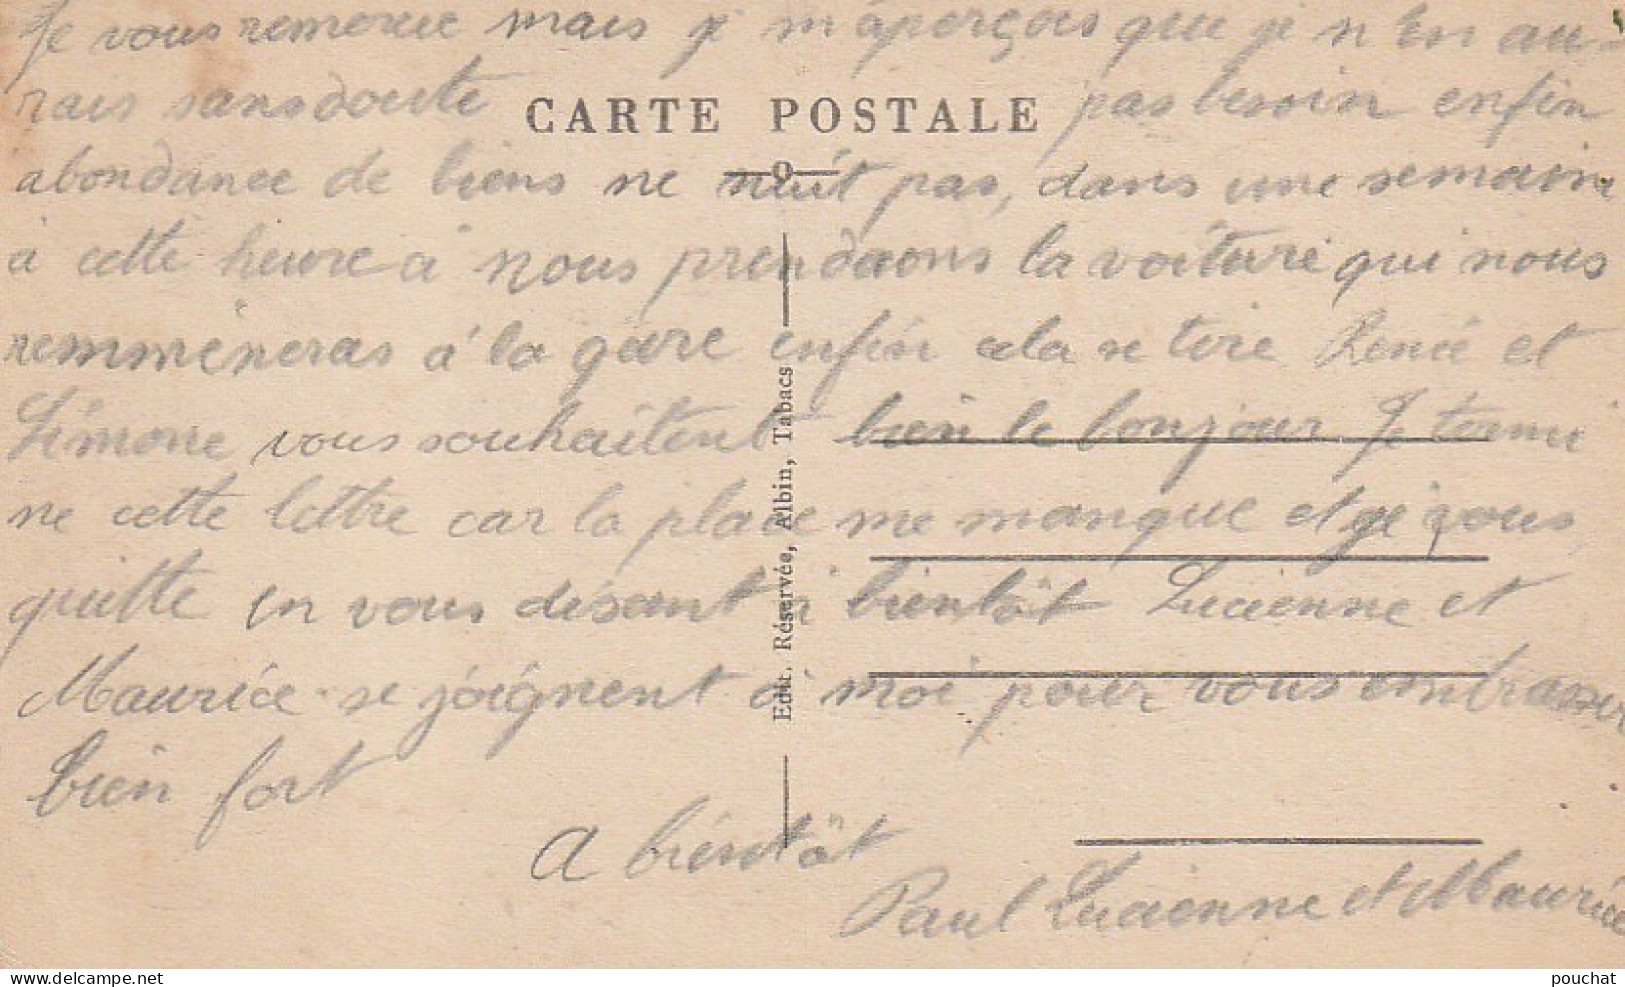 Je vous remercie mais je m'aperçois que je n'en au-
rais sans doute pas besoin enfin
CARTE POSTALE
abondance de biens ne nuit pas, dans une semaine
à cette heure à nous prendrons la voiture qui nous
remmèneras à la gare enfin cela se tire Renée et
Simone vous souhaitent bien le bonjour Je termi
ne cette lettre car la place me manque et je vous
quitte en vous disant à bientôt Lucienne et
Maurice se joignent à moi pour vous embrasser
bien fort
A bientôt
Paul Lucienne et Maurice
Edit. Réservée, Albin, Tabacs
delcampe.net
pouchat